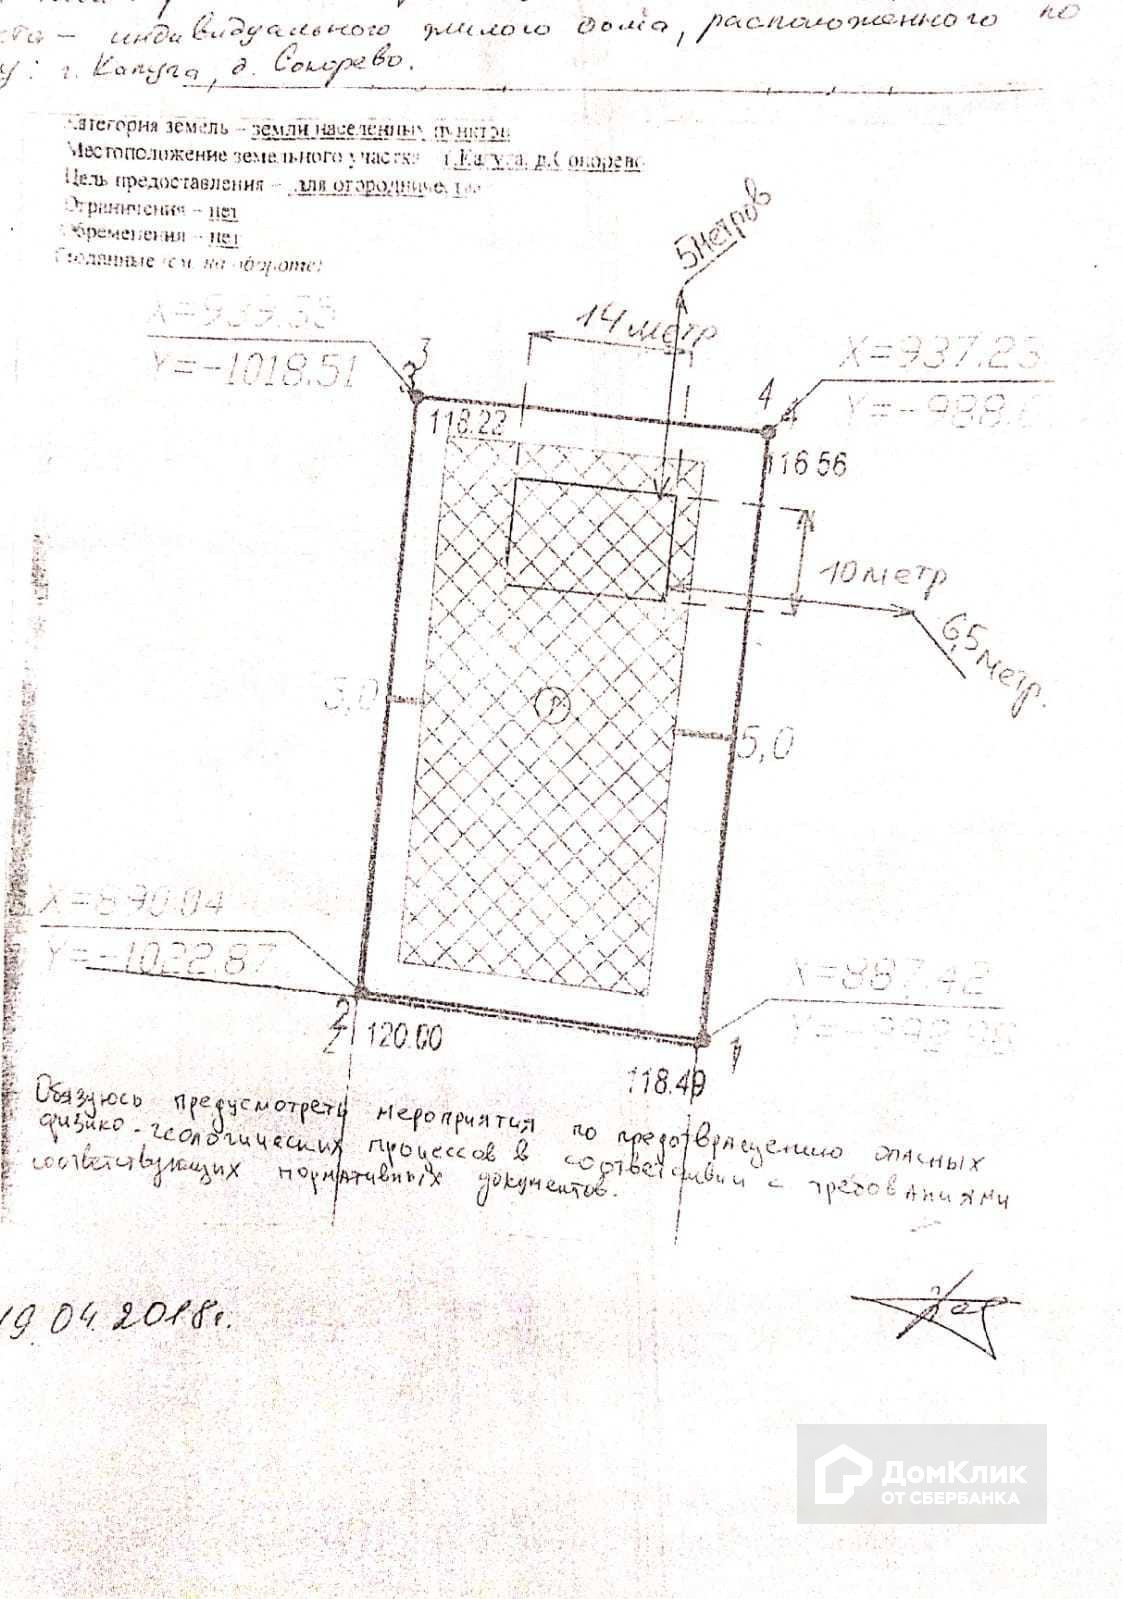 индивидуального жилого дома, расположенного по
у: г. Калуга, д. Сокорево.
Категория земель – земли населенных пунктов
Местоположение земельного участка – г.Калуга, д.Сокорево
Цель предоставления – для огородничества
Ограничения – нет
Обременения – нет
(см. на обороте)
5 метров
14 метр
X=939.33
Y=-1018.51
3
3
X=937.23
Y=-988.
4
4
118.22
116.56
10 метр
6,5 метр.
3,0
P
5,0
X=890.04
Y=-1022.87
X=887.42
2
2
120.00
1
118.49
Обязуюсь предусмотреть мероприятия по предотвращению опасных
физико-геологических процессов в соответствии с требованиями
соответствующих нормативных документов.
19.04.2018г.
ДомКлик
ОТ СБЕРБАНКА